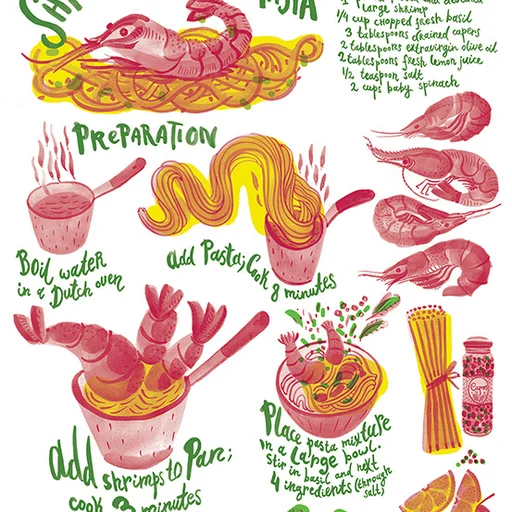 PASTA
large shrimp
1/4 cup chopped fresh basil
3 tablespoons drained capers
2 tablespoons extravirgin olive oil
2 tablespoons fresh lemon juice
1/2 teaspoon salt
2 cups baby spinach
PREPARATION
Boil water
in a Dutch oven
add Pasta; Cook 8 minutes
add shrimps to Pan;
cook 3 minutes
Place pasta mixtuse
in a large bowl.
Stir in basil and next
4 ingredients (through
salt)